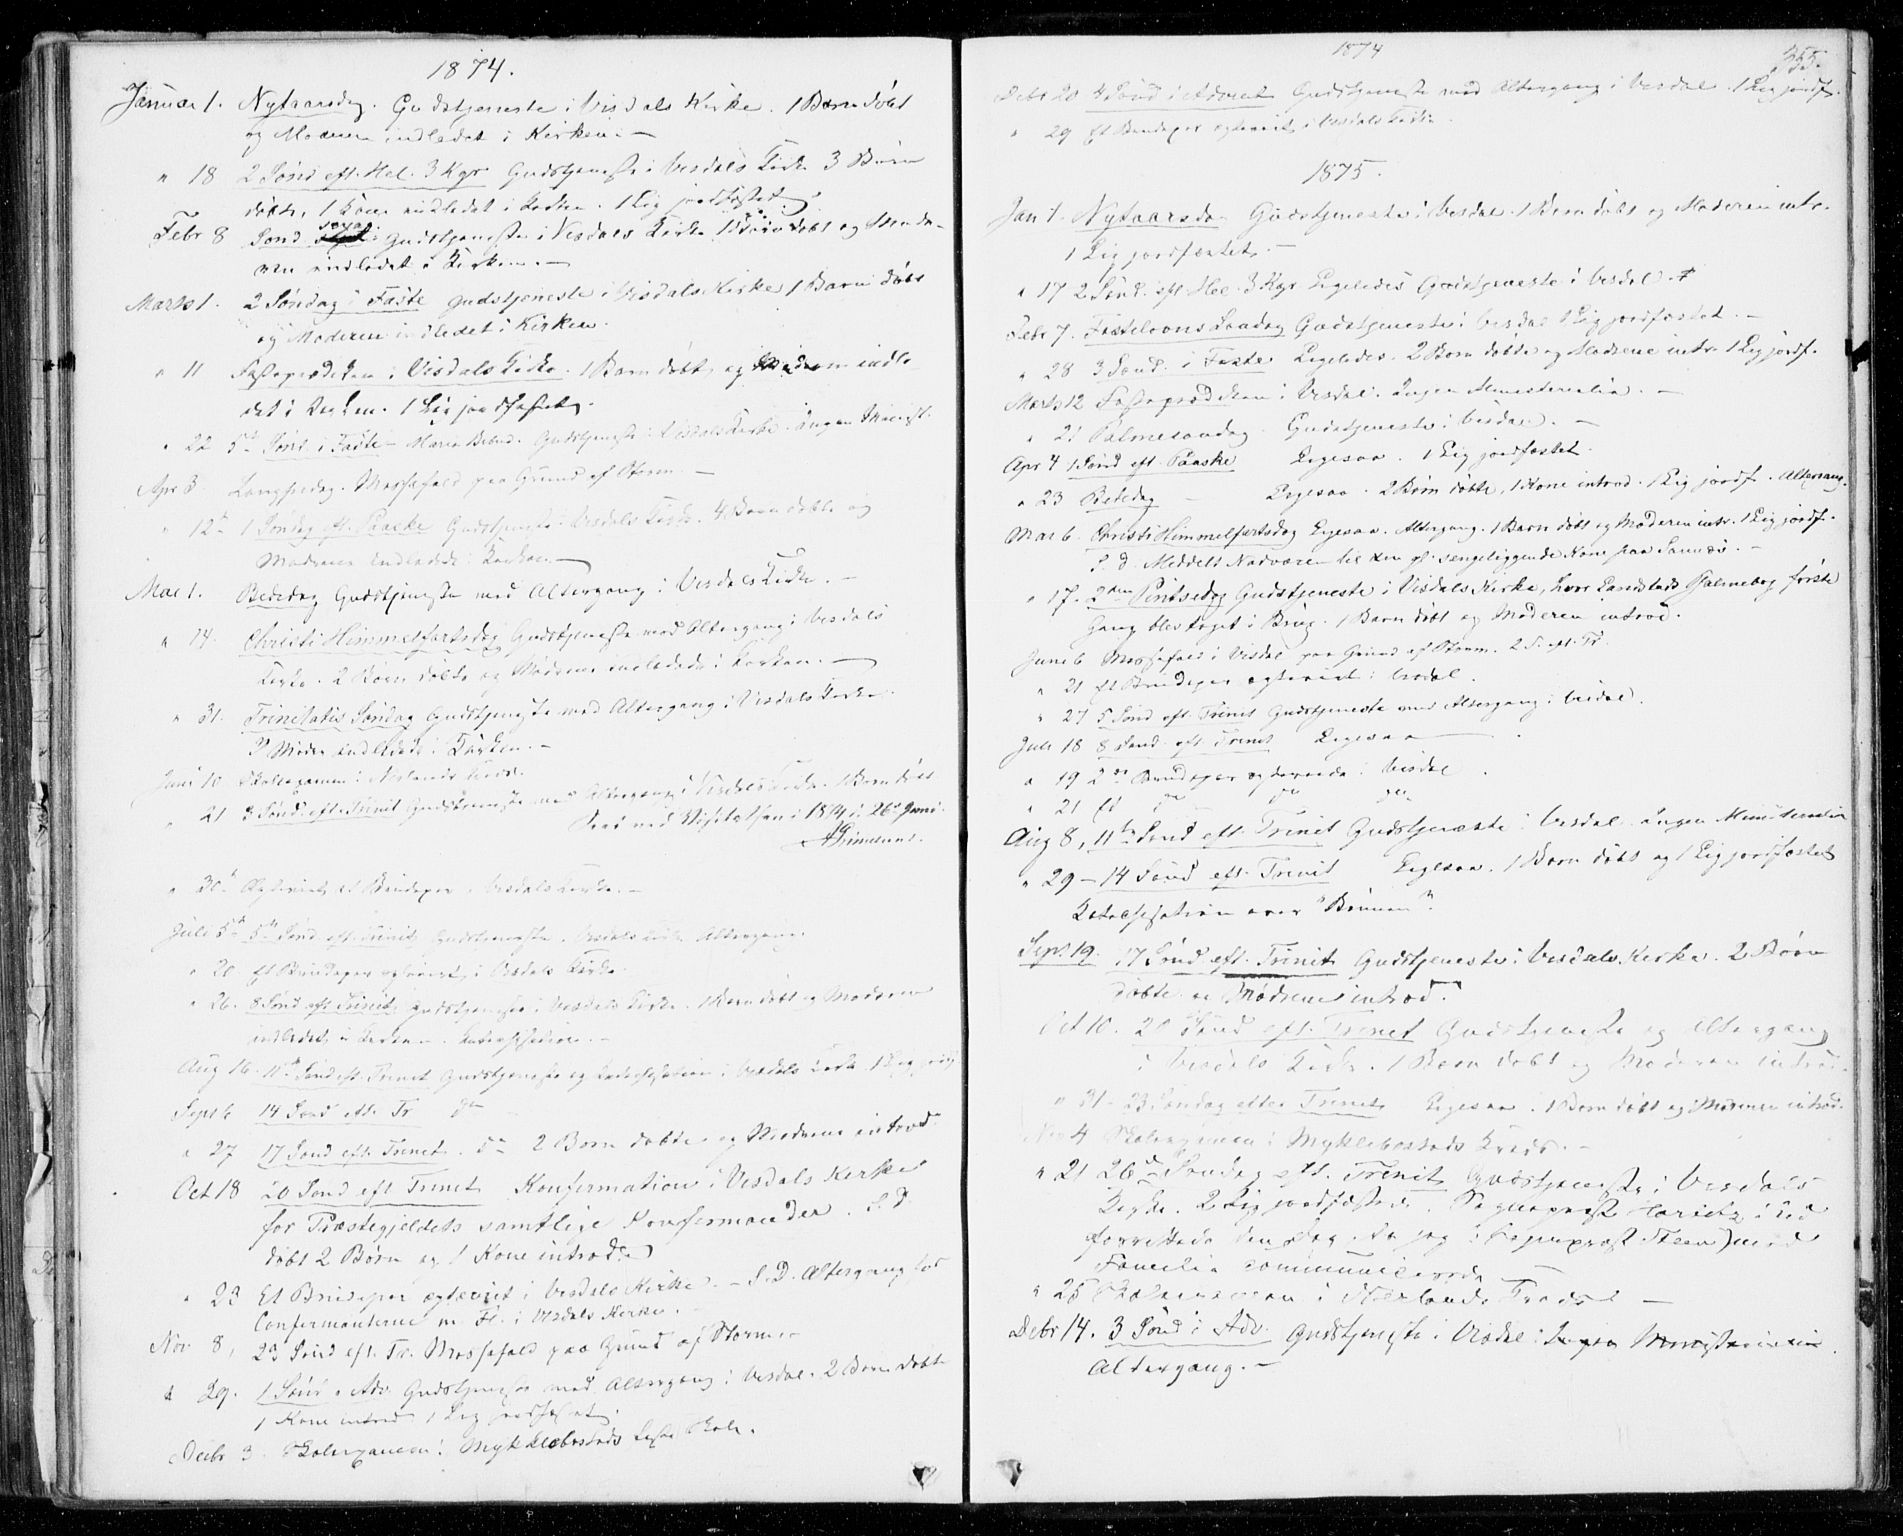 1874.
Januar 1. Nytaarsdag. Gudstjeneste i Visdals Kirke. 1 Barn döbt
og Moderen indledet i Kirken. —
" 18 2 Sönd eft. Hel. 3 Kgr Gudstjeneste i Visdals Kirke 3 Börn
döbte, 1 Kone indledet i Kirken. 1 Lig jordfæstet.
Febr 8 Sönd Sexag: Gudstjeneste i Visdals Kirke 1 Barn döbt og Mode-
ren indledet i Kirken. —
Marts 1. 2 Söndag i Faste Gudstjeneste i Visdals Kirke 1 Barn döbt
og Moderen indledet i Kirken.
" 11 Fasteprædiken i Visdals Kirke. 1 Barn döbt, og Moderen indle
det i Kirken. 1 Lig jordfæstet.
" 22 5te Sönd. i Faste – Mariæ Bebud. Gudstjeneste i Visdals Kirke. Ingen Minist.
Apr 3. Langfredag. Messefald paa Grund af Storm. —
" 12te 1 Söndag eft. Paaske Gudstjeneste i Visdals Kirke. 4 Börn döbte og
Mödrene indledede i Kirken. —
Mai 1. Bededag Gudstjeneste med Altergang i Visdals Kirke. —
" 14. Christi Himmelfartsdag Gudstjeneste med Altergang i Visdals
Kirke. 2 Börn döbte og Mödrene indledede i Kirken. —
" 31. Trinitatis Söndag Gudstjeneste med Altergang i Visdals Kirke.
Möder indledede i Kirken. —
Juni 10 Skoleexamen i Nerlands Kreds.
" 21 3 Sönd. eft. Trinit Gudstjeneste med Altergang i Visdals Kirke. 1 Barn döbt
Seet ved Visitatsen i 1874 d. 26de Juni.
AGrimelund.
" 30te Ægteviet et Brudepar i Visdals Kirke. —
Juli 5te 5te Sönd eft. Trinit Gudstjeneste i Visdals Kirke Altergang.
" 20 Et Brudepar ægteviet i Visdals Kirke.
" 26. 8 Sönd eft Trinit Gudstjeneste i Visdals Kirke. 1 Barn döbt og Moderen
indledet i Kirken –. Katechisation. —
Aug 16. 11te Sönd eft. Trinit Gudstjeneste og Katechisation i Visdals Kirke 1 Lig jordf
Sept 6 14 Sönd eft. Tr do —
" 27 17 Sönd eft. Trinit. do 2 Börn döbte og Mödrene introd
Oct 18 20 Sönd eft Trinit Konfirmation i Visdals Kirke
for Præstegjeldets samtlige Konfirmander. S. D
döbt 2 Börn og 1 Kone introd.
" 23 Et Brudepar ægteviet i Visdals Kirke. — S. D. Altergang for
Confirmanterne m. Fl. i Visdals Kirke. —
Nov 8, 23 Sönd eft. Tr. Messefald paa Grund af Storm. —
" 29. 1 Sönd i Adv. Gudstjeneste med Altergang i Visdal. 2 Börn döbte
1 Kone introd 1 Lig jordfæstet.
Decbr 3. Skoleexamen i Myklebostads faste Skole.
1874
355.
Debr 20 4 Sönd i Advent Gudstjeneste med Altergang i Visdal. 1 Lig jordf.
" 29 Et Brudepar ægteviet i Visdals Kirke.
1875.
Jan 1. Nytaarsda Gudstjeneste i Visdal. 1 Barn döbt og Moderen intr.
1 Lig jordfæstet. —
" 17 2 Sönd. eft. Hel. 3 Kgr Ligeledes Gudstjeneste i Visdal
Febr 7. Fastelavns Söndag Gudstjeneste i Visdal 1 Lig jordfæstet. —
" 28 3 Sönd. i Faste Ligeledes. 2 Börn döbte og Mödrene intr. 1 Lig jordf.
Marts 12 Fasteprædiken i Visdal. Ingen Ministerialia. —
" 21 Palmesöndag Gudstjeneste i Visdal. —
Apr 4 1 Sönd eft. Paaske Ligesaa. 1 Lig jordfæstet.
" 23 Bededag — Ligesaa. 2 Börn döbte, 1 Kone introd. 1 Lig jordf. Altergang.
Mai 6. Christi Himmelfartsdag Ligesaa. Altergang. 1 Barn döbt og Moderen intr. 1 Lig jordf.
S. d. Meddelt Nadveren til en gl. sengeliggende Kone paa Sannæs. —
" 17. 2den Pintsedag Gudstjeneste i Visdals Kirke, hvor Landstads Psalmebog förste
Gang blev taget i Brug. 1 Barn döbt og Moderen introd.
Juni 6 Messefald i Visdal paa Grund af Storm. 2 S. eft. Tr.
" 21 Et Brudepar ægteviet i Visdal.
" 27 5 Sönd eft. Trinit Gudstjeneste med Altergang i Visdal.
Juli 18 8 Sönd. eft. Trinit Ligesaa
" 19 2de Brudepar ægteviede i Visdal.
" 21 Et do do do
Aug 8, 11te Sönd eft. Trinit Gudstjeneste i Visdal. Ingen Ministerialia
" 29 — 14 Sönd eft. Trinit Ligesaa. 1 Barn döbt og 1 Lig jordfæstet
Katechisation over "Bönnen".
Sept. 19. 17 Sönd eft. Trinit Gudstjeneste i Visdals Kirke. 2 Börn
döbte og Mödrene introd.
Oct 10. 20 Sönd eft. Trinit Gudstjeneste og Altergang
i Visdals Kirke. 1 Barn döbt og Moderen introd.
" 31 – 23 Söndag efter Trinit Ligesaa. 1 Barn döbt og Moderen introd.
Nov 4 Skoleexamen i Myklebostads Kreds. —
" 21 26de Söndag eft. Trinit Gudstjeneste i Visdals
Kirke. 2 Lig jordfæstede. Sogneprest i
forrettede den Dag da jeg (Sogneprest Steen) med
Familie communicerede —
" 25 Skoleexamen i Nerlands Kreds —
Debr 14. 3 Sönd i Adv. Gudstjeneste i Visdal. Ingen Ministerialia.
Altergang. —